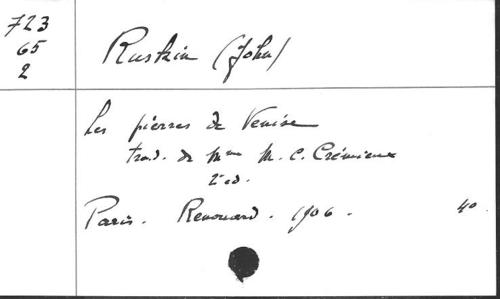 723
65
2
Ruskin (John)
Les pierres de Venise
trad. de Mme M. C. Crémieux
2e ed.
Paris. Renouard. 1906.
4o